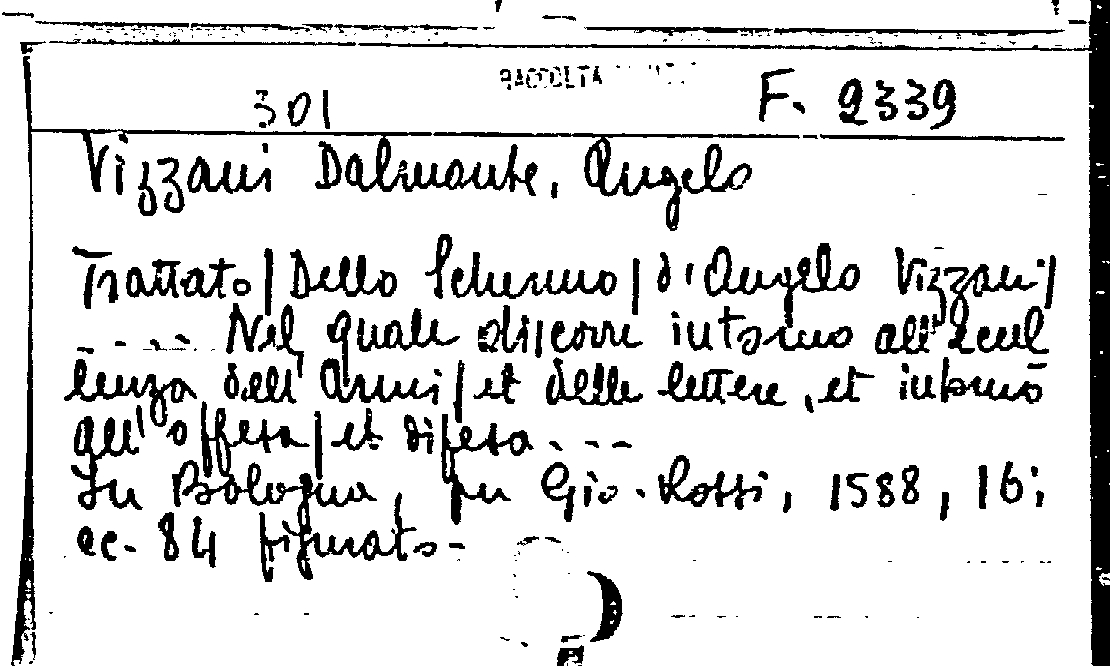 RACCOLTA
301 F. 2339
Vizzani Dalmonte, Angelo
Trattato / Dello Schermo / d'Angelo Vizzani /
---- Nel quale discorre intorno all'Eccel
lenza dell'Armi / et delle lettere, et intorno
all'offesa / et difesa ---
In Bologna, per Gio. Rossi, 1588, 16;
cc. 84 figurato-